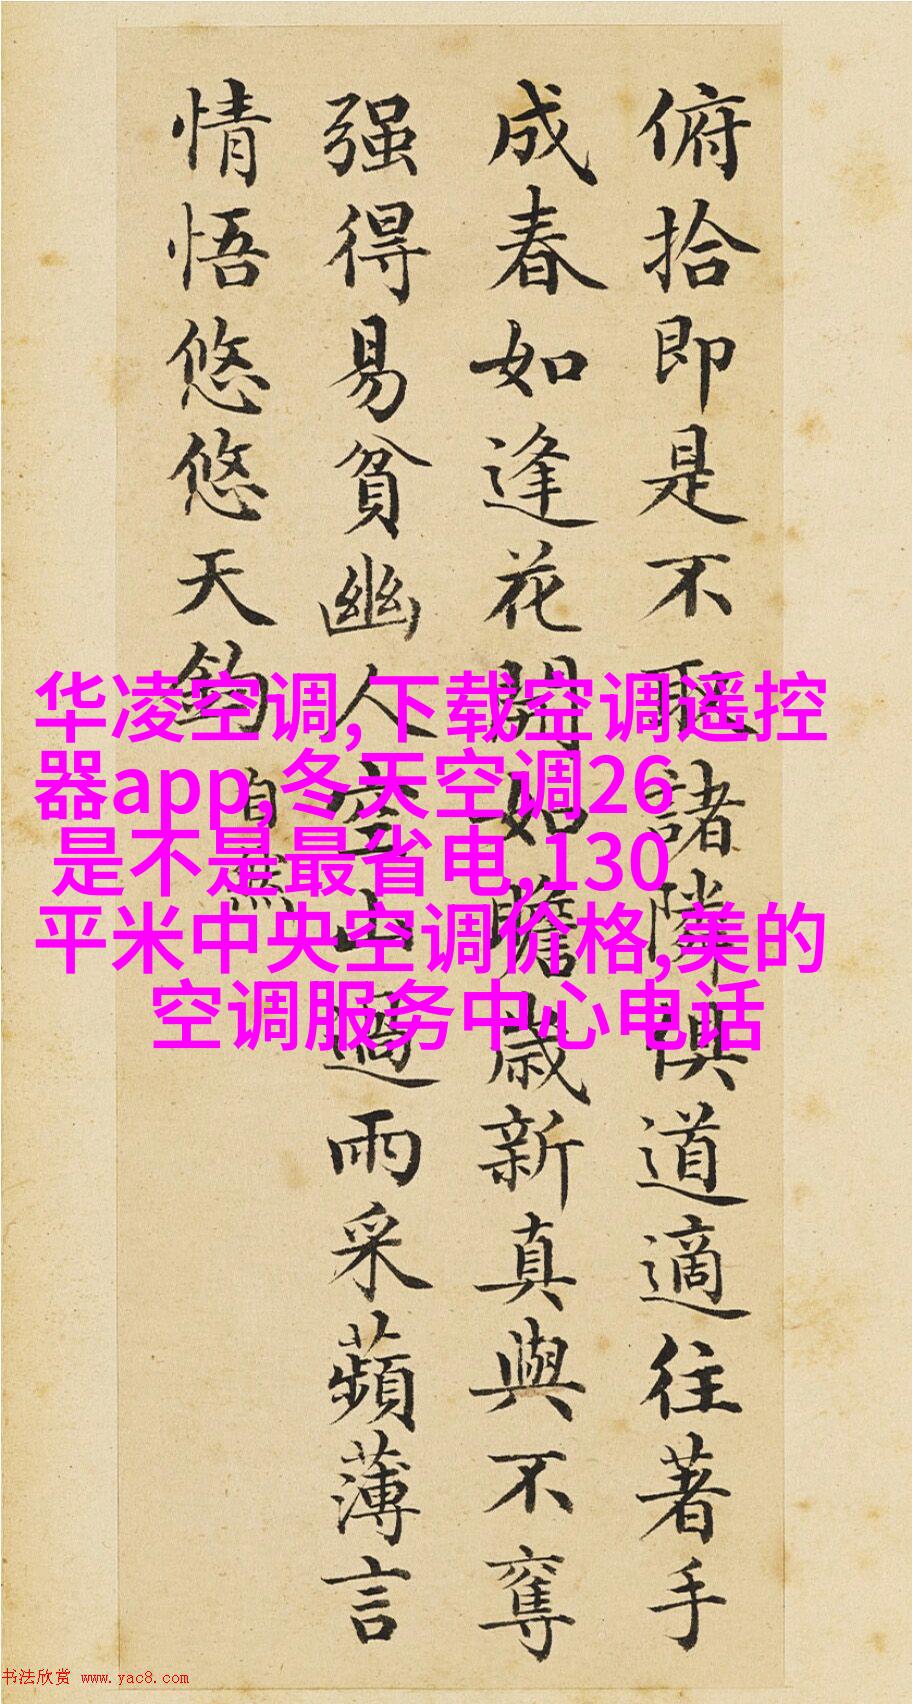 俯拾即是不取諸隣俱道適往著手
成春如逢花開如瞻歲新真與不奪
强得易貧幽人空山過雨采蘋薄言
情悟悠悠天鈞
自然
华凌空调,下载空调遥控
器app,冬天空调26
是不是最省电,130
平米中央空调价格,美的
空调服务中心电话
书法欣赏 www.yac8.com